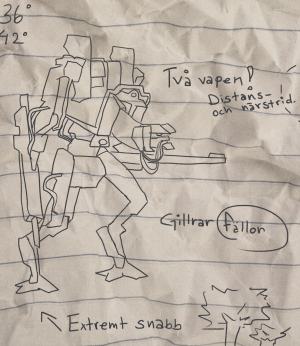 36°
42°
Två vapen!
Distans-
och närstrid.
Gillrar fällor
Extremt snabb